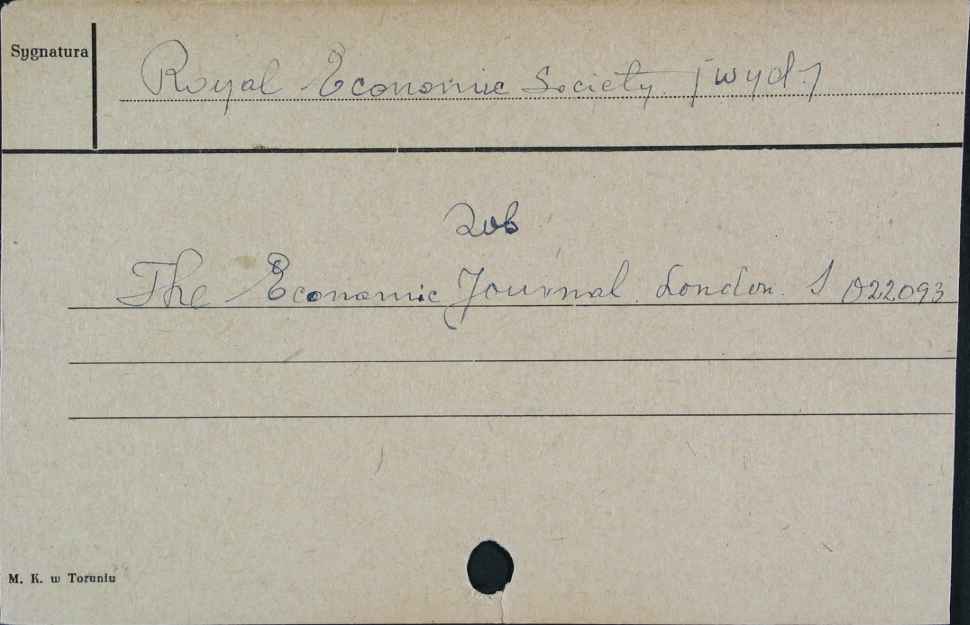 Sygnatura
Royal Economic Society [wyd.]
Zob
The Economic Journal. London. S 022093
M. K. w Toruniu